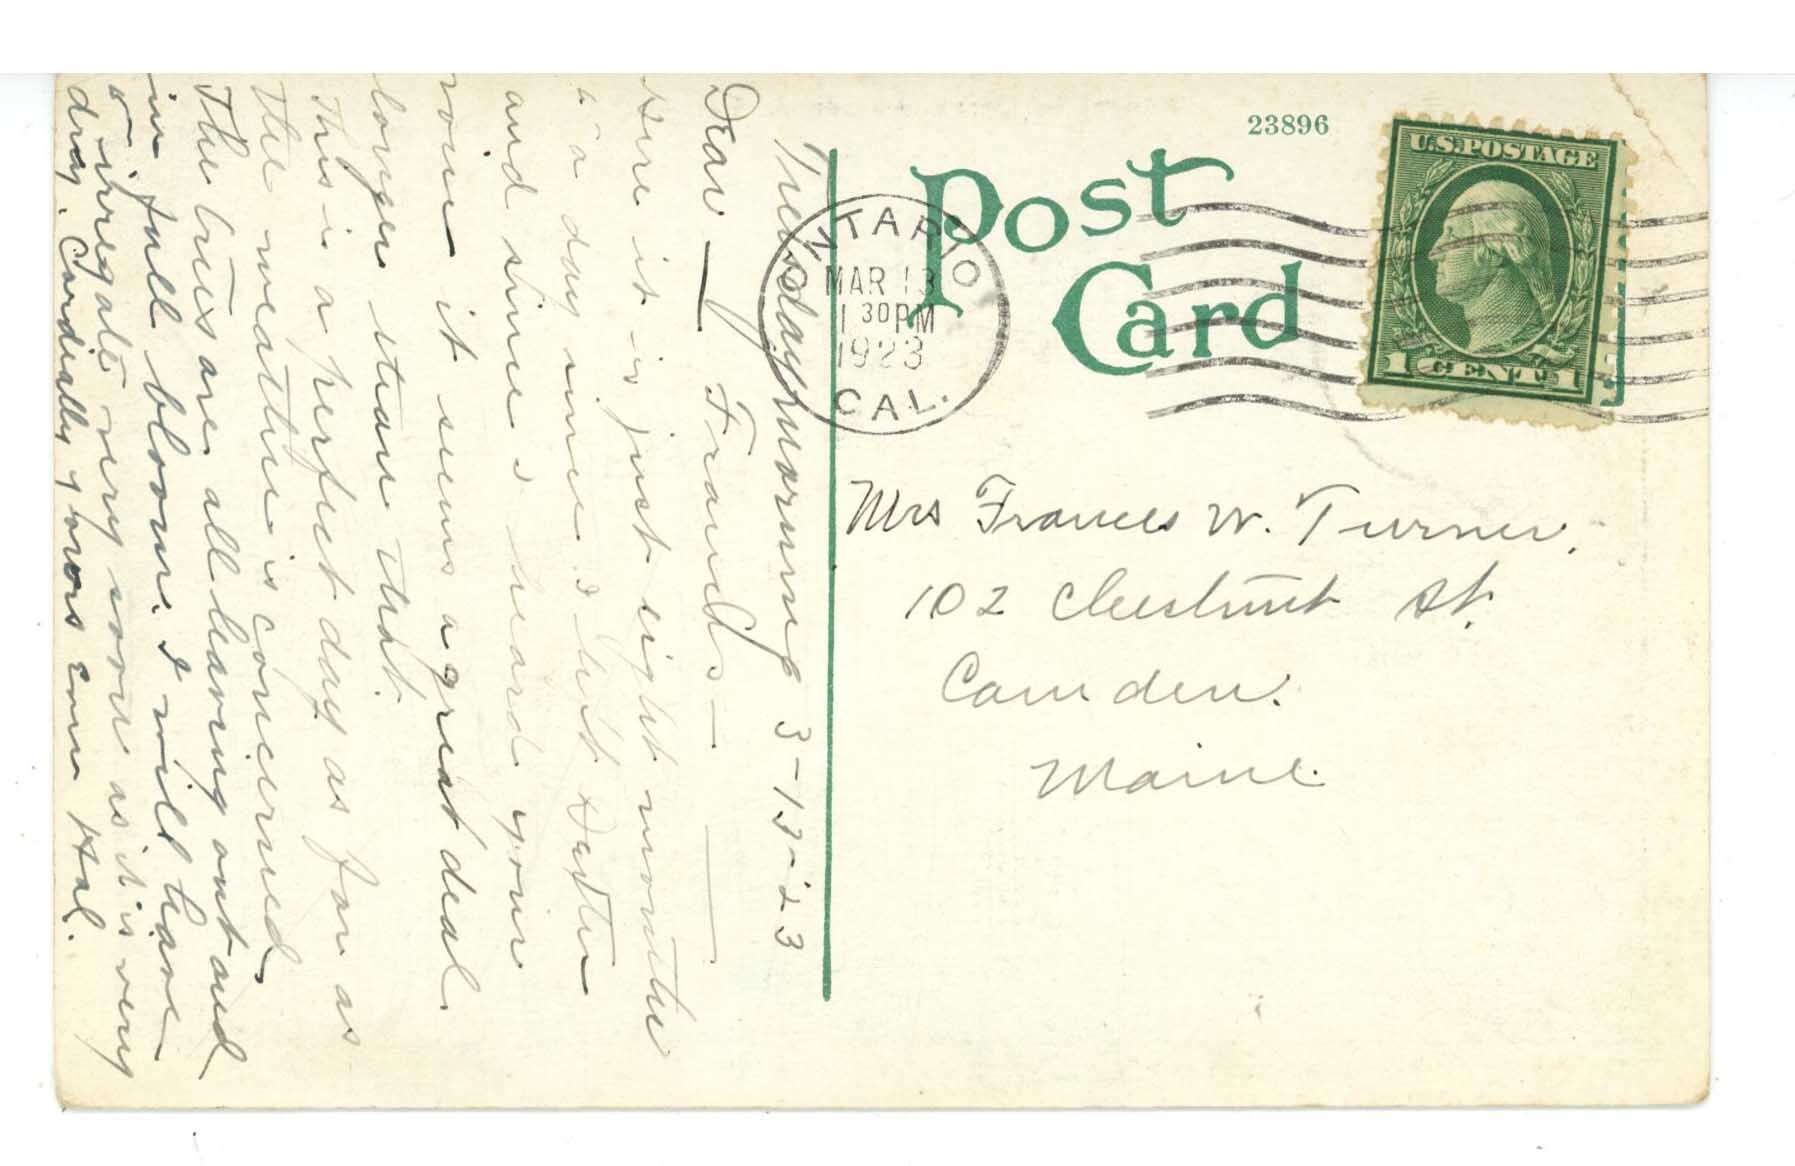 23896
Post
Card
U.S. POSTAGE
1 CENT 1
ONTARIO
MAR 13
1 30 PM
1923
CAL.
Mrs Frances W. Turner.
102 Chestnut St.
Camden.
Maine.
Tuesday morning 3-13-23
Dear — Frances —
Here it is just eight months
to a day since I left
and since I heard your
voice it seems a great deal
longer than that.
This is a perfect day as far as
the weather is concerned.
The trees are all leaving out and
in full bloom. I will have
to irregate very soon as it is very
dry. Cordially yours Hal.